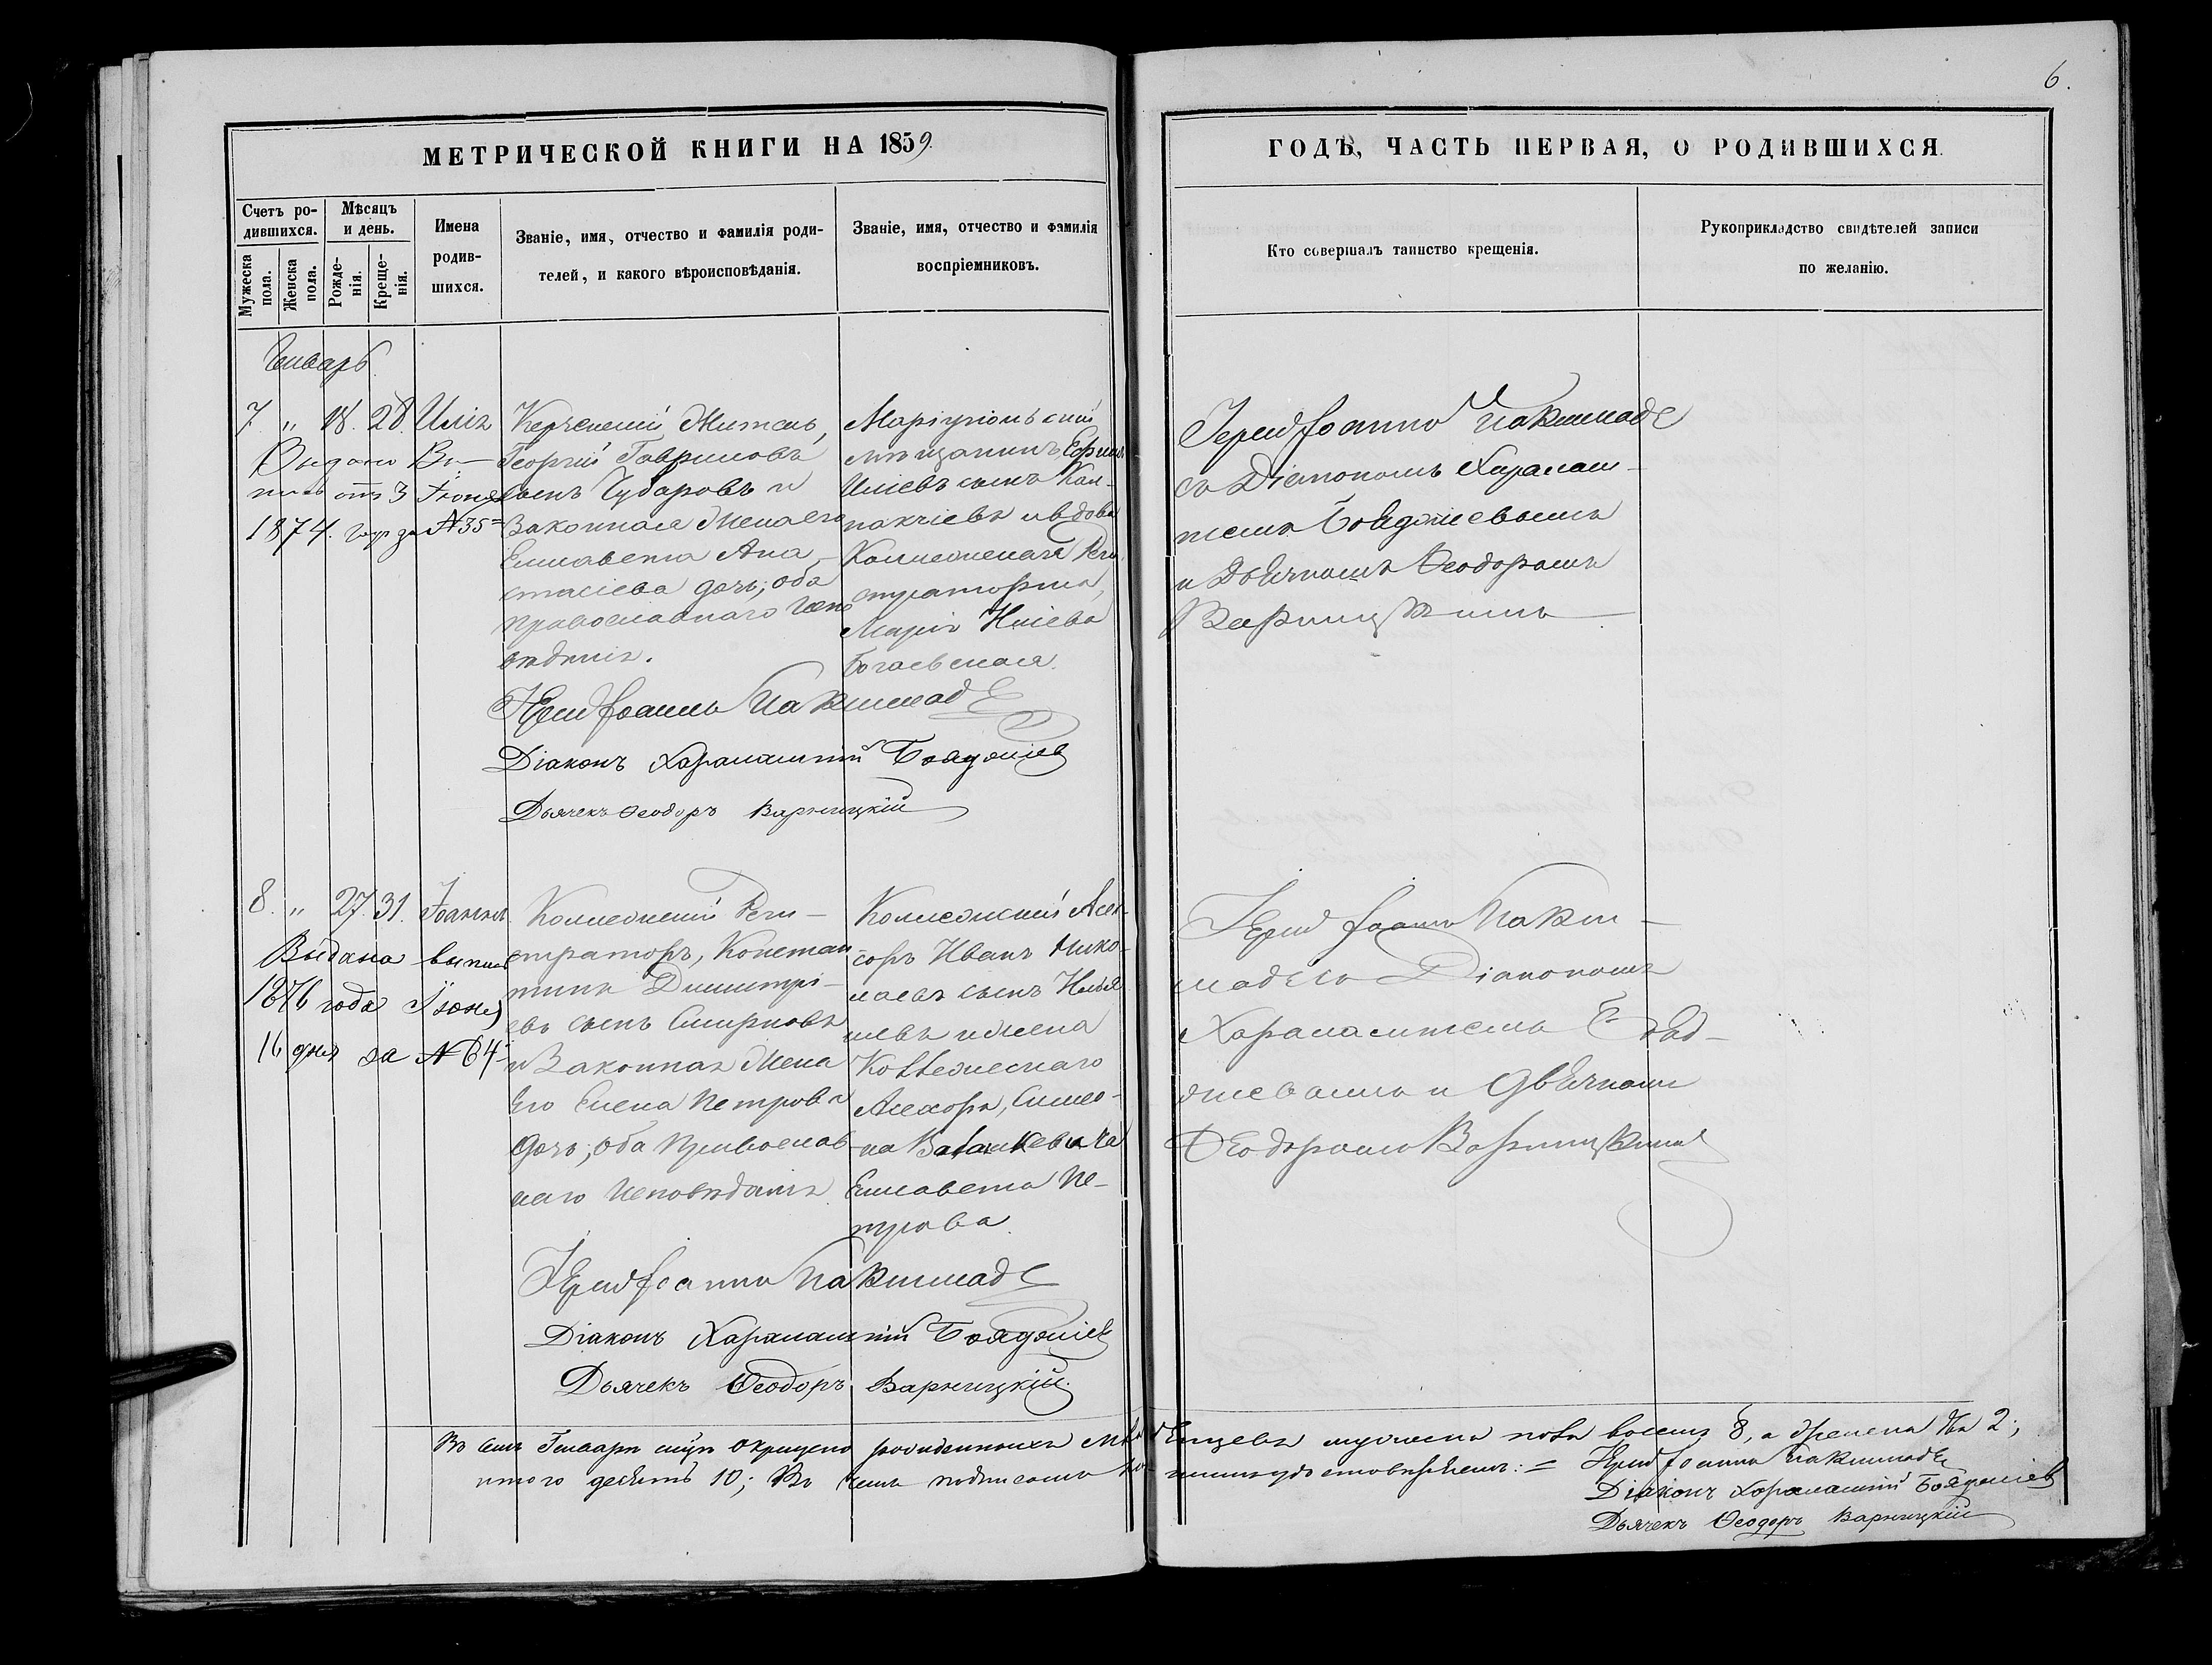 6.
МЕТРИЧЕСКОЙ КНИГИ НА 1859.
ГОДѢ, ЧАСТЬ ПЕРВАЯ, О РОДИВШИХСЯ.
Счетъ ро-
дившихся.
Мужеска
пола.
Женска
пола.
Мѣсяцъ
и день.
Рожде-
нія.
Креще-
нія.
Имена
родив-
шихся.
Званіе, имя, отчество и фамилія роди-
телей, и какого вѣроисповѣданія.
Званіе, имя, отчество и фамилія
воспріемниковъ.
Кто совершалъ таинство крещенія.
Рукоприкладство свидѣтелей записи
по желанію.
Генварь.
7. " 18. 28. Илія
3 Іюня
1874. за № 35
Керченскій Житель,
Георгій Гавриловъ
сынъ Чубаровъ и
Законная Жена его
Елисавета Ана-
стасіева дочь; оба
православнаго Испо
вѣданія.
Маріупольскій
мѣщанинъ
Иліевъ сынъ Кал-
пакчіевъ и вдова
Коллежская Реги
страторша,
Марія Иліева
Богаевская.
Іерей Іоаннъ
съ Діакономъ Харалам-
піемъ Бояджіевымъ
и Дьячкомъ Ѳеодоромъ
Варницкимъ
Іерей Іоаннъ
Діаконъ Харалампій Бояджіев
Дьячекъ Ѳеодоръ Варницкій
8. " 27. 31. Іоаннъ
Выдана выпись
1876 года Іюня
16 дня за № 64
Коллежскій Реги-
страторъ, Констан
тинъ Димитрі-
евъ сынъ Смирновъ
и Законная Жена
Его Елена Петрова
дочь; оба Православ
наго Исповѣданія.
Коллежскій Асес-
соръ Иванъ Нико-
лаевъ сынъ
и жена
Коллежскаго
Асессора, Симео-
на
Елисавета Пе-
трова.
Іерей Іоаннъ
съ Діакономъ
Харалампіемъ Бояд-
жіевымъ и Дьячкомъ
Ѳеодоромъ Варницкимъ
Іерей Іоаннъ
Діаконъ Харалампій Бояджіев
Дьячекъ Ѳеодоръ Варницкій.
Въ семъ Генварѣ окрещено родившихся младенцевъ мужеска пола восемь 8, а женска два 2;
итого десять 10; Въ чемъ подписомъ
Іерей Іоаннъ
Діаконъ Харалампій Бояджіев
Дьячекъ Ѳеодоръ Варницкій